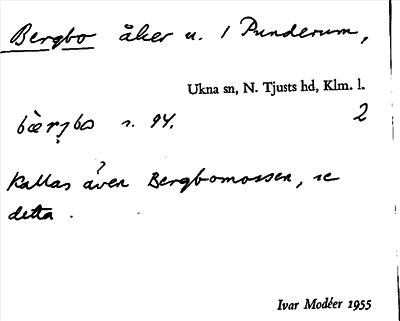 Bergbo åker u. 1 Punderum,
Ukna sn, N. Tjusts hd, Klm. l.
2
bàrjbo s. 94.
?
Kallas även Bergbomossen, se
detta.
Ivar Modéer 1955